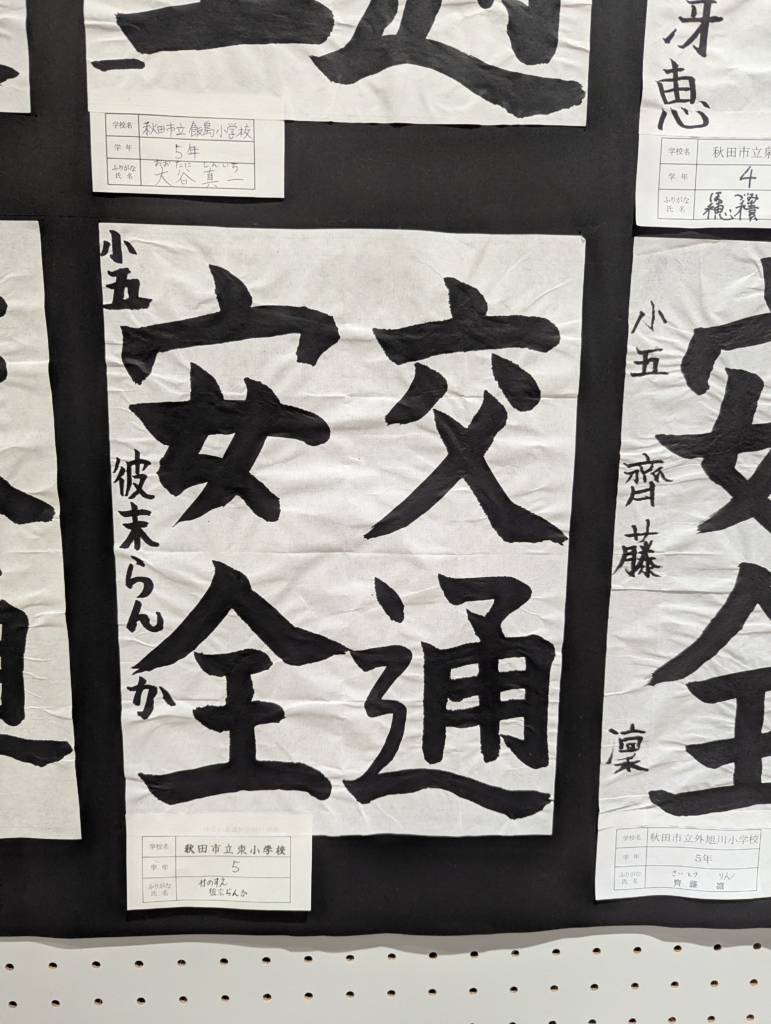 学校名 秋田市立飯島小学校
学年 5年
ふりがな おおたに しんいち
氏名 大谷 真一
冴恵
学校名 秋田市立泉
学年 4
ふりがな
氏名
交通
安全
小五 彼末らんか
学校名 秋田市立東小学校
学年 5
ふりがな かのすえ
氏名 彼末らんか
安全
小五 齊藤 凛
学校名 秋田市立外旭川小学校
学年 5年
ふりがな さいとう りん
氏名 齊藤 凛